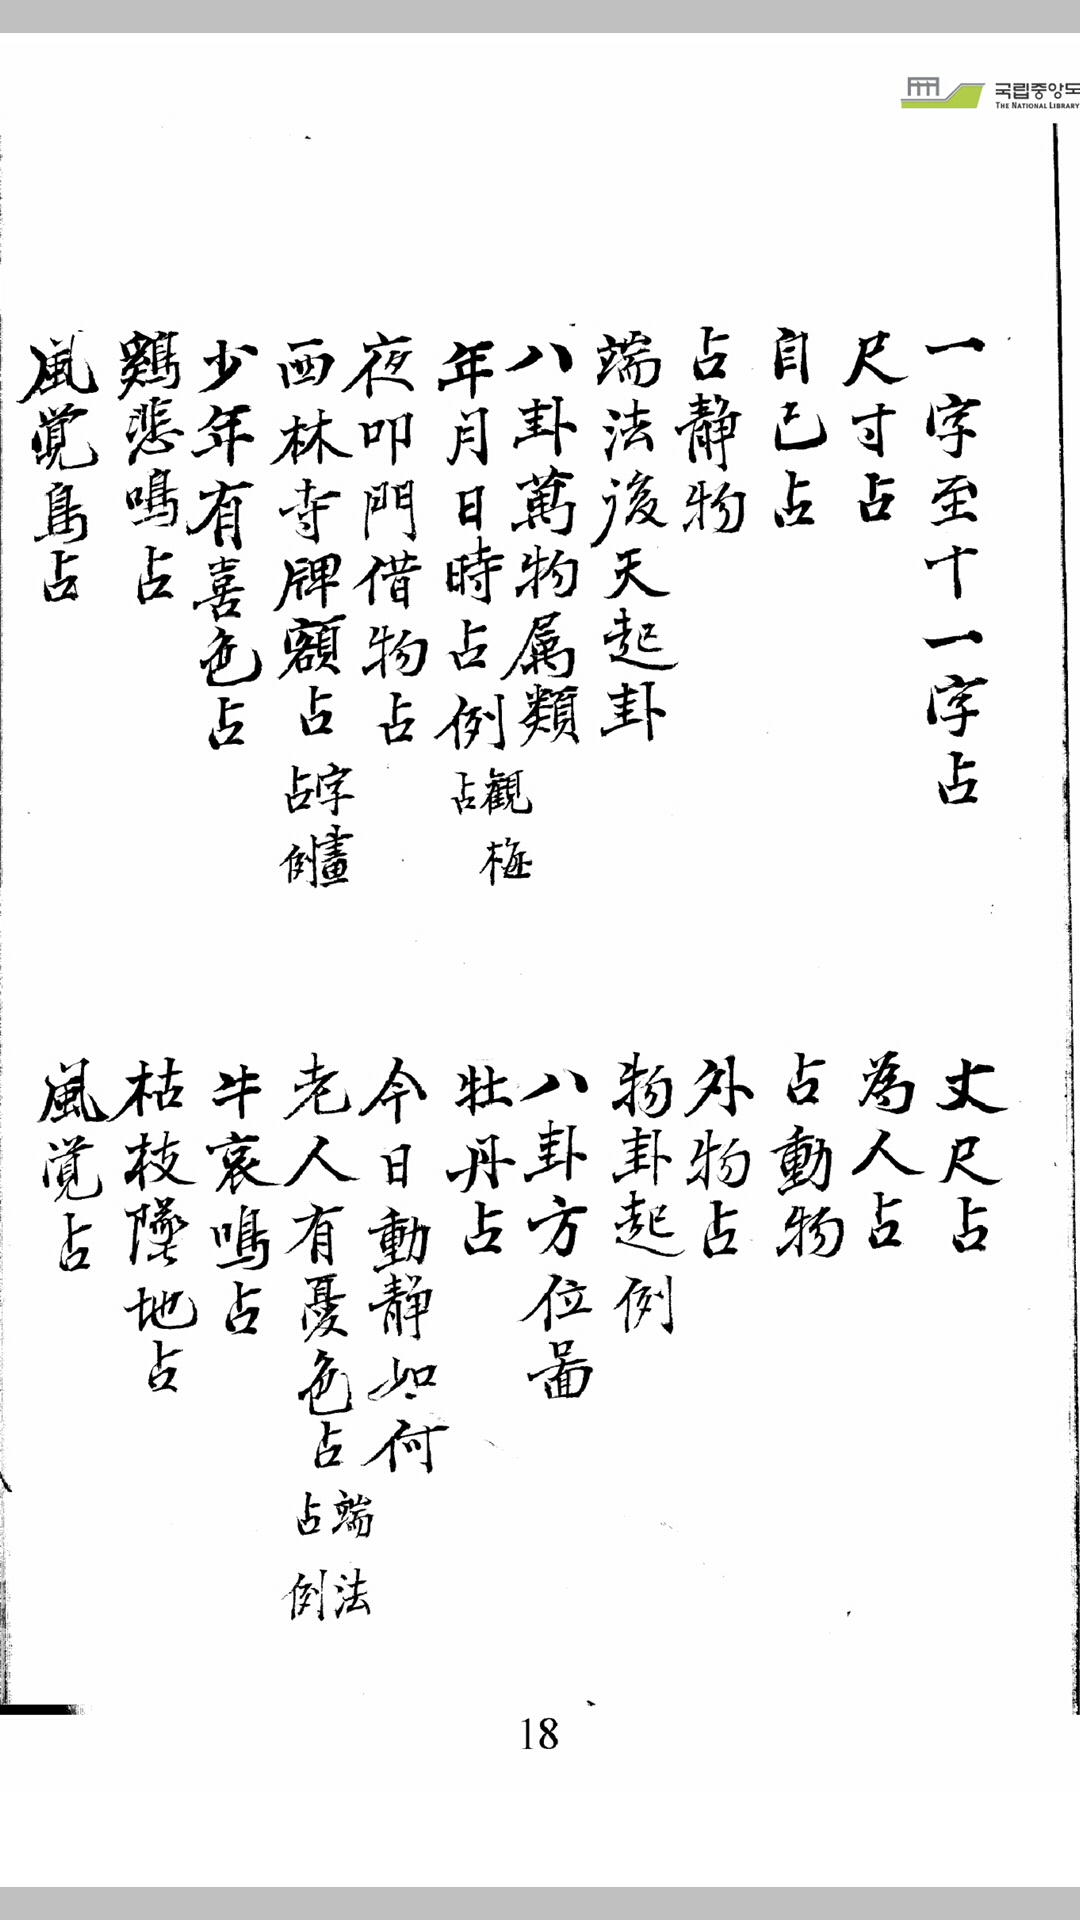 국립중앙도
THE NATIONAL LIBRARY
一字至十一字占
丈尺占
尺寸占
為人占
自己占
占動物
占静物
外物占
端法後天起卦
物卦起例
八卦萬物属類
八卦方位啚
年月日時占例 觀梅占
牡丹占
夜叩門借物占
今日動静如何
西林寺牌額占 字畫占例
老人有憂色占 端法占例
少年有喜色占
牛哀鳴占
鷄悲鳴占
枯枝墜地占
風覚鳥占
風覚占
18